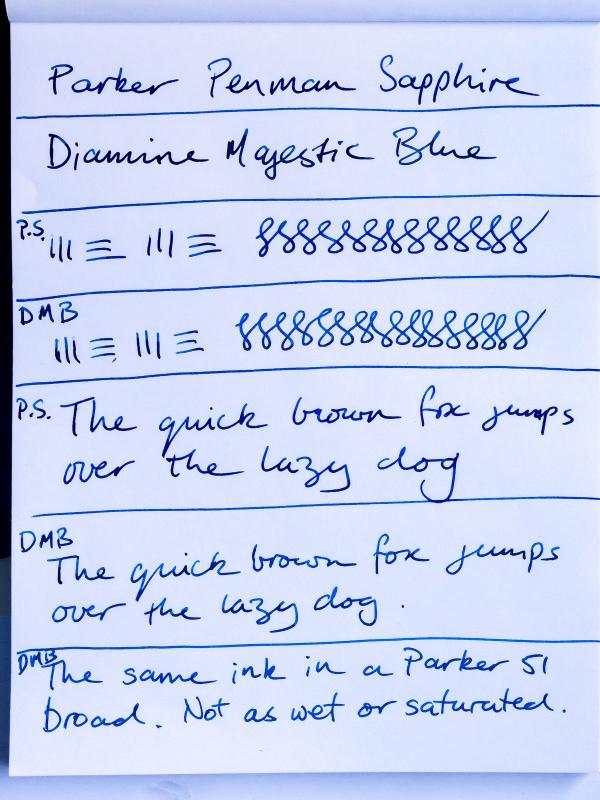 Parker Penman Sapphire
Diamine Majestic Blue
P.S.
DMB
P.S. The quick brown fox jumps
over the lazy dog
DMB
The quick brown fox jumps
over the lazy dog.
DMB The same ink in a Parker 51
broad. Not as wet or saturated.